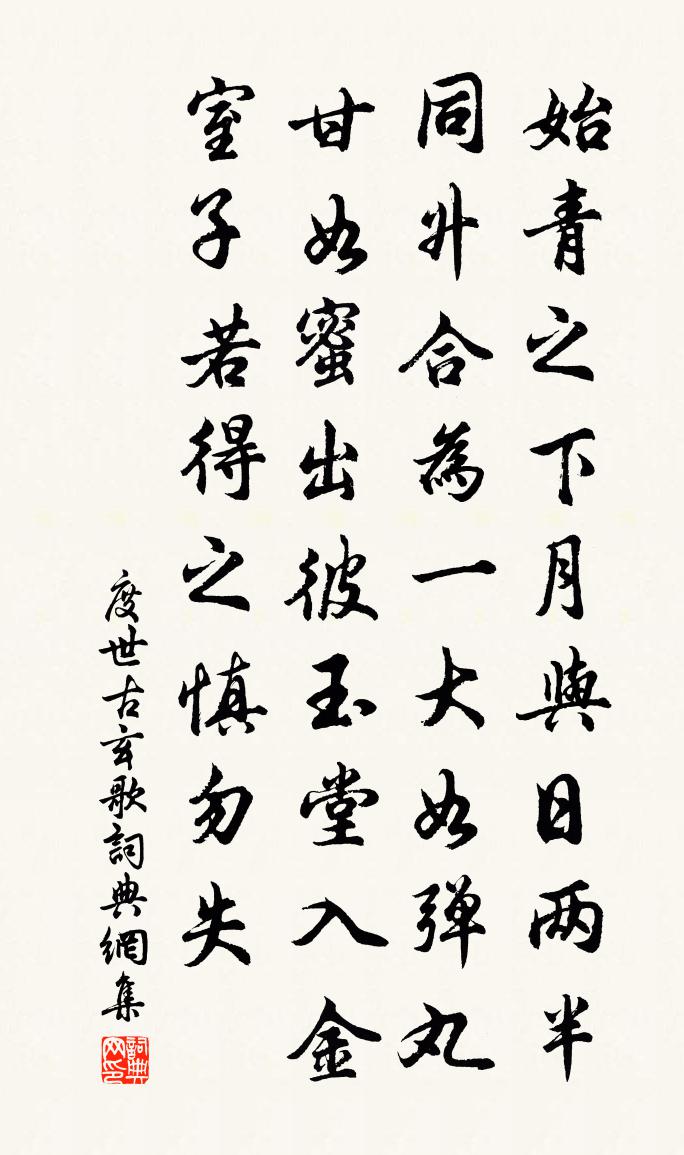 始青之下月與日两半
同升合為一大如弹丸
甘如蜜出彼玉堂入金
室子若得之慎勿失
度世古玄歌詞典網集
詞典网印